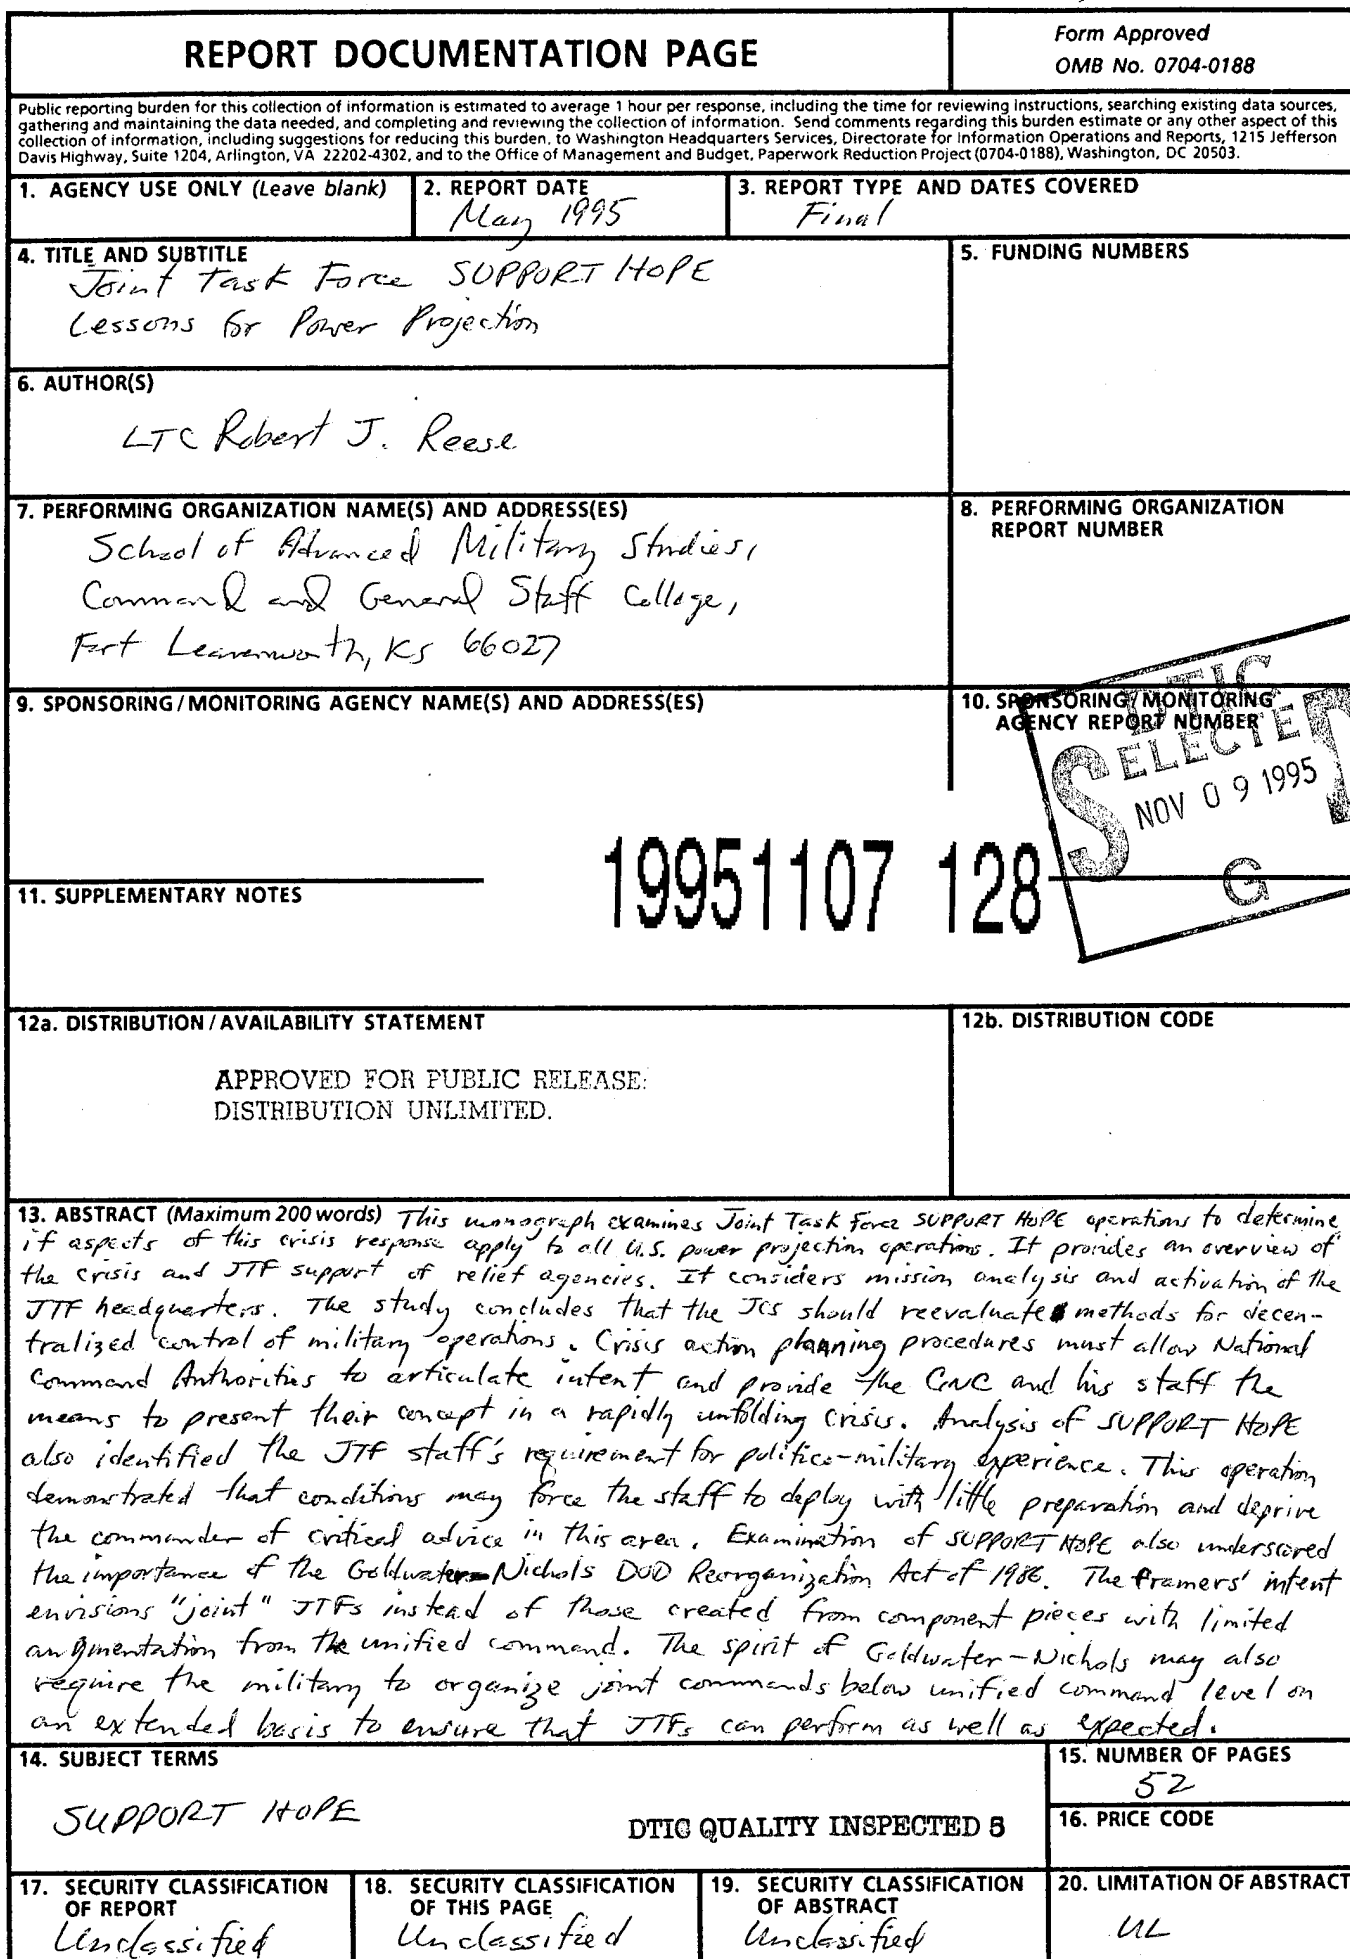 REPORT DOCUMENTATION PAGE
Form Approved
OMB No. 0704-0188
Public reporting burden for this collection of information is estimated to average 1 hour per response, including the time for reviewing instructions, searching existing data sources,
gathering and maintaining the data needed, and completing and reviewing the collection of information. Send comments regarding this burden estimate or any other aspect of this
collection of information, including suggestions for reducing this burden, to Washington Headquarters Services, Directorate for Information Operations and Reports, 1215 Jefferson
Davis Highway, Suite 1204, Arlington, VA 22202-4302, and to the Office of Management and Budget, Paperwork Reduction Project (0704-0188), Washington, DC 20503.
1. AGENCY USE ONLY (Leave blank)
2. REPORT DATE
May 1995
3. REPORT TYPE AND DATES COVERED
Final
4. TITLE AND SUBTITLE
Joint Task Force SUPPORT HOPE
Lessons for Power Projection
5. FUNDING NUMBERS
6. AUTHOR(S)
LTC Robert J. Reese
7. PERFORMING ORGANIZATION NAME(S) AND ADDRESS(ES)
School of Advanced Military Studies,
Command and General Staff College,
Fort Leavenworth, Ks 66027
8. PERFORMING ORGANIZATION
REPORT NUMBER
9. SPONSORING/MONITORING AGENCY NAME(S) AND ADDRESS(ES)
10. SPONSORING/MONITORING
AGENCY REPORT NUMBER
DTIC
SELECTED
NOV 09 1995
G
19951107 128
11. SUPPLEMENTARY NOTES
12a. DISTRIBUTION/AVAILABILITY STATEMENT
APPROVED FOR PUBLIC RELEASE:
DISTRIBUTION UNLIMITED.
12b. DISTRIBUTION CODE
13. ABSTRACT (Maximum 200 words) This monograph examines Joint Task Force SUPPORT HOPE operations to determine
if aspects of this crisis response apply to all U.S. power projection operations. It provides an overview of
the crisis and JTF support of relief agencies. It considers mission analysis and activation of the
JTF headquarters. The study concludes that the JCS should reevaluate methods for decen-
tralized control of military operations. Crisis action planning procedures must allow National
Command Authorities to articulate intent and provide the CINC and his staff the
means to present their concept in a rapidly unfolding crisis. Analysis of SUPPORT HOPE
also identified the JTF staff's requirement for politico-military experience. This operation
demonstrated that conditions may force the staff to deploy with little preparation and deprive
the commander of critical advice in this area. Examination of SUPPORT HOPE also underscored
the importance of the Goldwater-Nichols DOD Reorganization Act of 1986. The framers' intent
envisions "joint" JTFs instead of those created from component pieces with limited
augmentation from the unified command. The spirit of Goldwater-Nichols may also
require the military to organize joint commands below unified command level on
an extended basis to ensure that JTFs can perform as well as expected.
14. SUBJECT TERMS
SUPPORT HOPE
DTIC QUALITY INSPECTED 5
15. NUMBER OF PAGES
52
16. PRICE CODE
17. SECURITY CLASSIFICATION
OF REPORT
Unclassified
18. SECURITY CLASSIFICATION
OF THIS PAGE
Unclassified
19. SECURITY CLASSIFICATION
OF ABSTRACT
Unclassified
20. LIMITATION OF ABSTRACT
UL